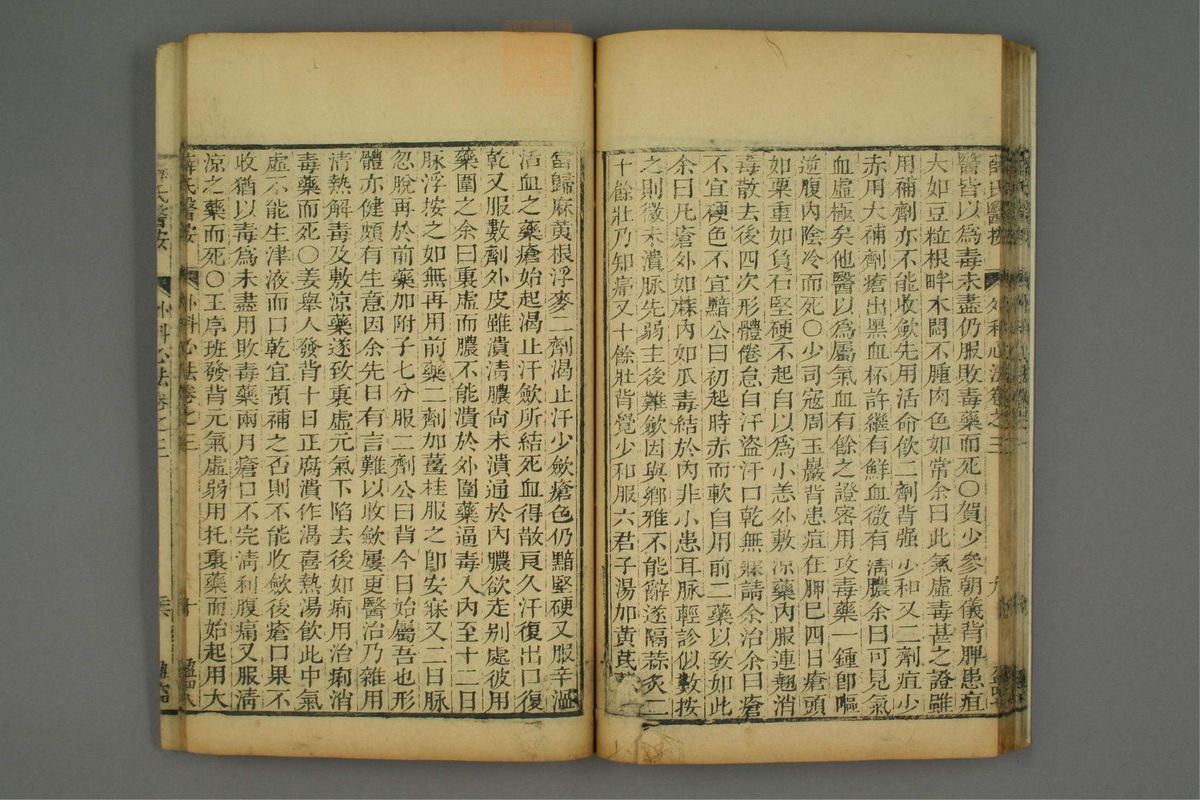 薛氏醫按 外科心法卷之三 九
醫皆以為毒未盡仍服敗毒藥而死○賀少參朝儀背胛患疽
大如豆粒根畔木悶不腫肉色如常余曰此氣虛毒甚之證雖
用補劑亦不能收斂先用活命飲二劑背強少和又二劑疽少
赤用大補劑瘡出黑血杯許繼有鮮血微有清膿余曰可見氣
血虛極矣他醫以為屬氣血有餘之證密用攻毒藥一鍾卽嘔
逆腹內陰冷而死○少司寇周玉巖背患疽在胛巳四日瘡頭
如粟重如負石堅硬不起自以為小恙外敷涼藥內服連翹消
毒散去後四次形體倦怠自汗盜汗口乾無寐請余治余曰瘡
不宜硬色不宜黯公曰初起時赤而軟自用前二藥以致如此
余曰凡瘡外如蔴內如瓜毒結於內非小患耳脉輕診似數按
之則微未潰脉先弱主後難斂因與鄉雅不能辭遂隔蒜炙二
十餘壯乃知痛又十餘壯背覺少和服六君子湯加黃芪
當歸麻黃根浮麥二劑渴止汗少斂瘡色仍黯堅硬又服辛溫
活血之藥瘡始起渴止汗斂所結死血得散良久汗復出口復
乾又服數劑外皮雖潰清膿尚未潰通於內膿欲走別處彼用
藥圍之余曰裏虛而膿不能潰於外圍藥逼毒入內至十二日
脉浮按之如無再用前藥二劑加薑桂服之卽安寐又二日脉
忽脫再於前藥加附子七分服二劑公曰背今日始屬吾也形
體亦健頗有生意因余先日有言難以收斂屢更醫治乃雜用
清熱解毒及敷涼藥遂致裏虛元氣下陷去後如痢用治痢消
毒藥而死○姜舉人發背十日正腐潰作渴喜熱湯飲此中氣
虛不能生津液而口乾宜預補之否則不能收斂後瘡口果不
收猶以毒為未盡用敗毒藥兩月瘡口不完淸利腹痛又服淸
涼之藥而死○王序班發背元氣虛弱用托裏藥而始起用大
薛氏醫按 外科心法卷之三 十